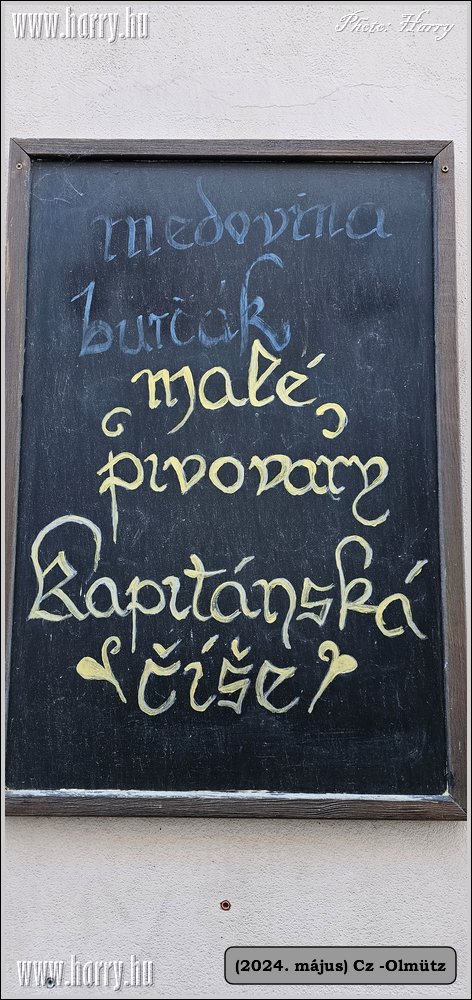 www.horry.hu
Photo: Harry
medovina
burčák
malé
pivovary
Kapitánská
číše
www.horry.hu
(2024. május) Cz -Olmütz